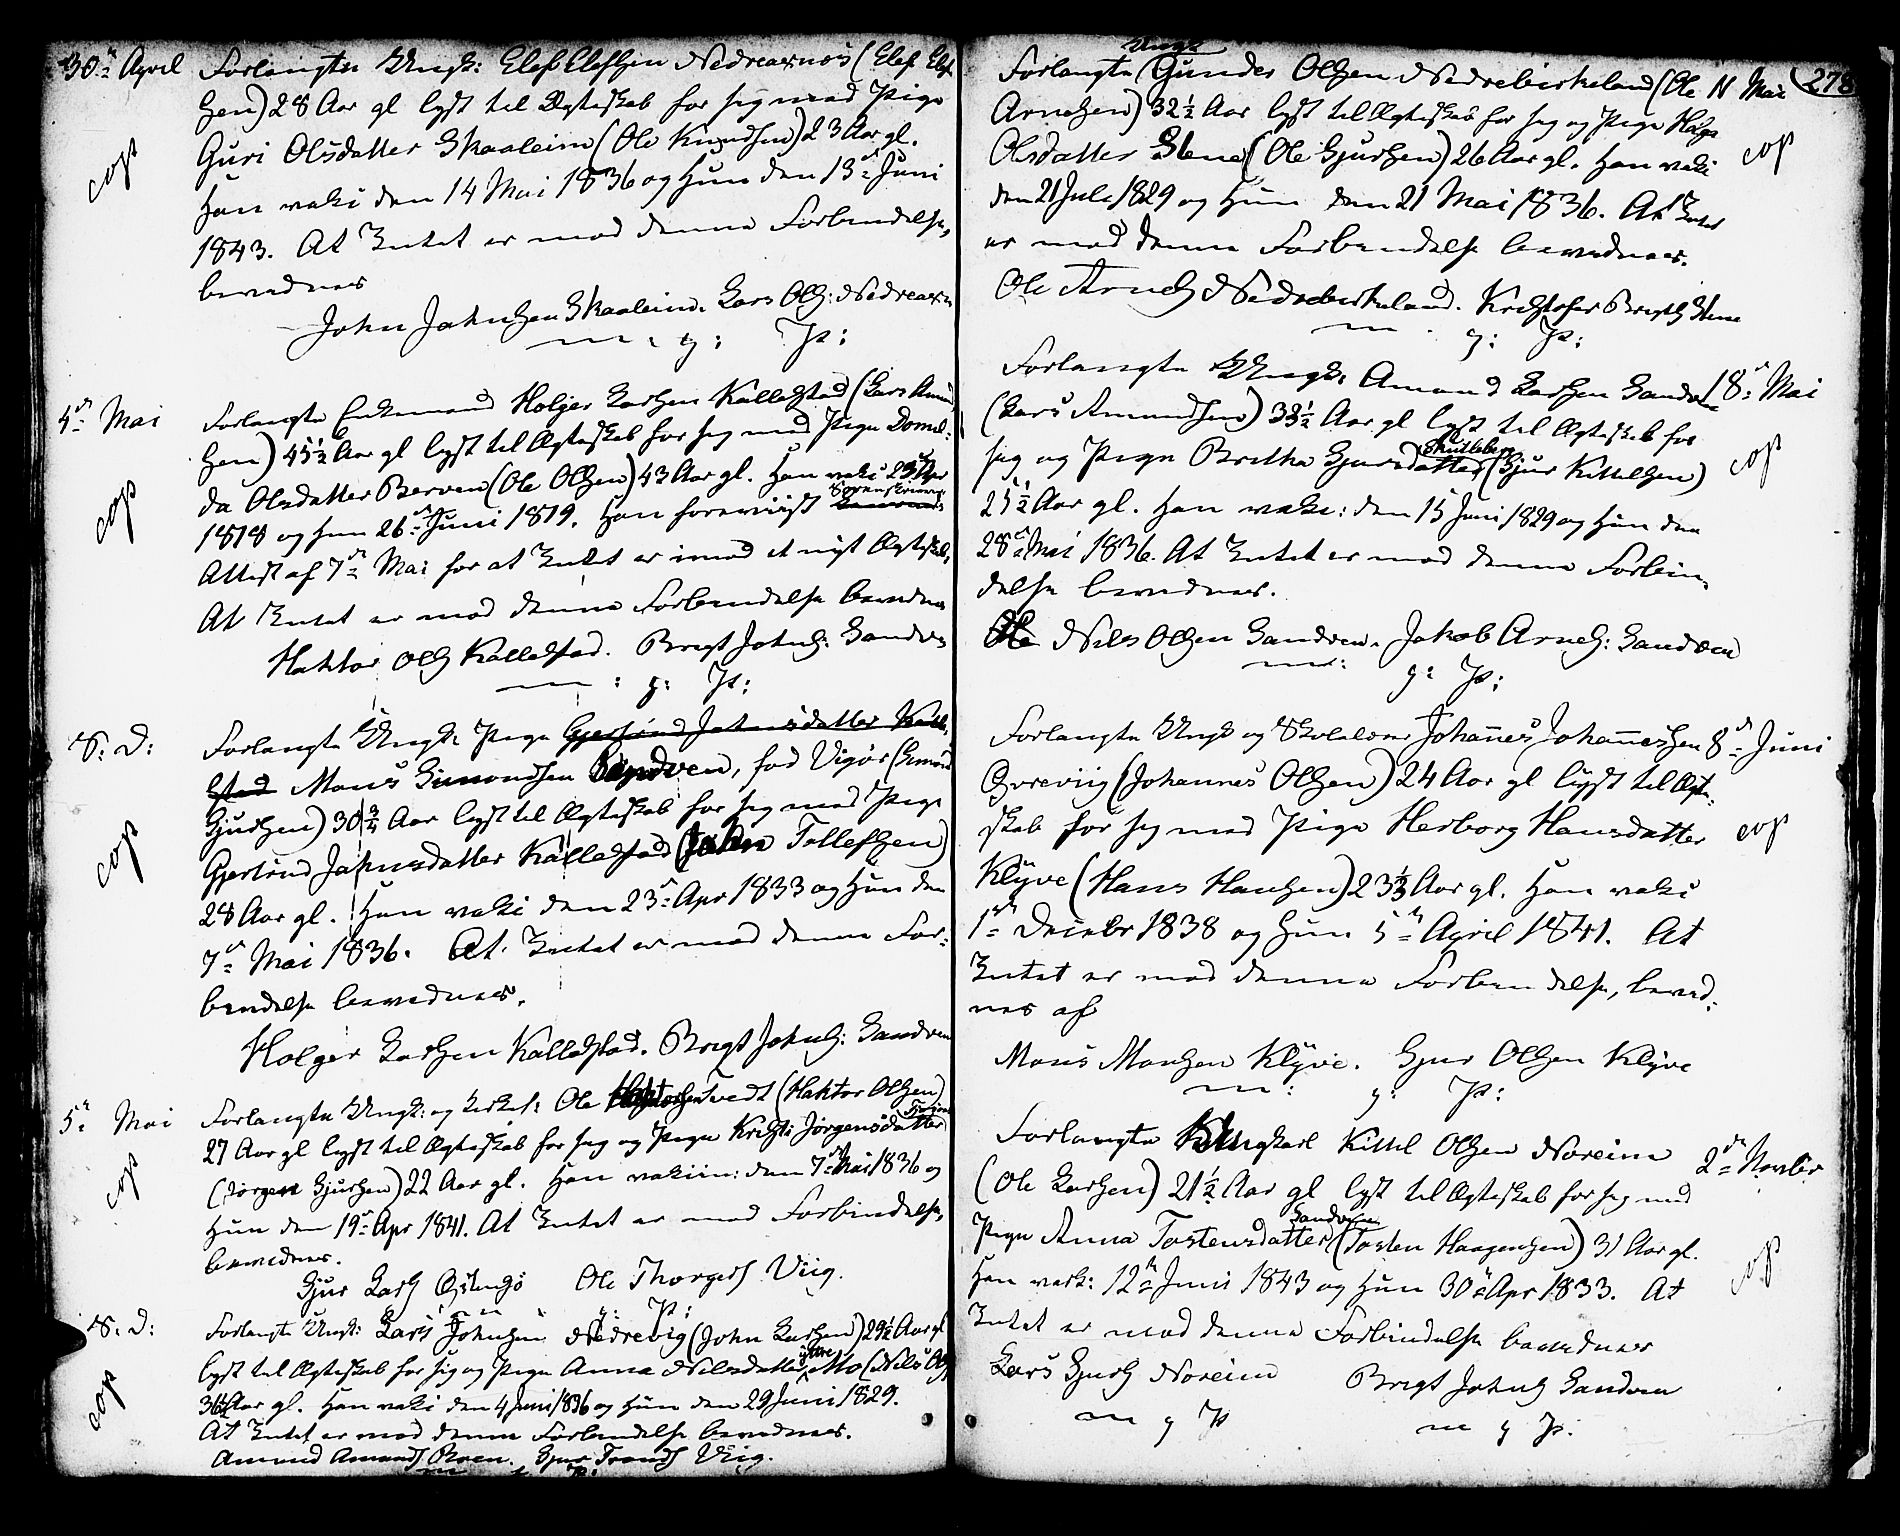 30te April Forlangte Ungk: Elef Elefsen Nedreaxnos (Elef Elef
sen) 28 Aar gl lyst til Ægteskab for sig med Pige
Guri Olsdatter Skaaleim (Ole Knudsen) 23 Aar gl.
cop
Han vakc den 14 Mai 1836 og Hun den 13de Juni
1843. At Intet er mod denne Forbindelse,
bevidnes
John Johnsen Skaaleim. Lars Ols: Nedreaxn
m. g: P:
4de Mai Forlangte Enkemand Holger Larsen Kalledstad (Lars Amund
sen) 45½ Aar gl lyst til Ægteskab for sig med Pige Domel:
da Olsdatter Berven (Ole Olsen) 43 Aar gl. Han vakc 23 Apr
cop
Sorenskriver
1818 og Hun 26de Juni 1819. Han foreviist
Attest af 7de Mai for at Intet er imod et nyt Ægteskab,
At Intet er mod denne Forbindelse bevidnes
Haktor Ols Kalledstad. Brigt Johns: Sandven
m: g: P:
S: D: Forlangte Ungk: Pige Gjertrud Johnsdatter Kalle
stad Mons Simonsen Sandven, fød Vigør (Simon
Gjursen) 30¾ Aar lyst til Ægteskab for sig med Pige
cop
Gjertrud Johnsdatter Kalledstad (John Tollefsen)
28 Aar gl. Han vakc den 23de Apr 1833 og Hun den
7de Mai 1836. At Intet er mod denne For:
bindelse bevidnes.
Holger Larsen Kalledstad. Brigt Johns: Sandven
5te Mai Forlangte Ungk: og Ole Haktorsen Tvedt (Haktor Olsen)
27 Aar gl lyst til Ægteskab for sig og Pige Kristi Jørgensdatter
cop
(Jørgen Gjursen) 22 Aar gl. Han vakcin: den 7de Mai 1836 og
Hun den 19de Apr 1841. At Intet er mod Forbindelse,
bevidnes.
Gjur Lars Østensø Ole Thorgers Viig.
m g: P:
S: D: Forlangte Ungk: Lars Johnsen Nedrevig (John Larsen) 29½ Aar gl
ytre
lyst til Ægteskab for sig og Pige Anna Nilsdatter Mo (Nils Ols
cop
36 Aar gl. Han vakc den 4 Juni 1836 og Hun den 29 Juni 1829.
At Intet er mod denne Forbindelse bevidnes.
Amund Amunds Roen. Gjur Tronds Viig.
278
Ungk
Forlangte Gunder Olsen Nedrebirkeland (Ole 11 Mai
Arnesen) 32½ Aar lyst til Ægteskab for sig og Pige Helga
Olsdatter Stene (Ole Gjursen) 26 Aar gl. Han vakc
cop
den 21 Juli 1829 og Hun den 21 Mai 1836. At Intet
er mod denne Forbindelse bevidnes.
Ole Arnes Nedrebirkeland. Kristofer Brigts Stene
m. g: P:
Forlangte Ungk: Amund Larsen Sandven 18de Mai
(Lars Amundsen) 33½ Aar gl lyst til Ægteskab for
Skutleberg
sig og Pige Britha Gjursdatter (Gjur Kittelsen)
cop
25½ Aar gl. Han vakc: den 15 Juni 1829 og Hun den
28de Mai 1836. At Intet er mod denne Forbin:
delse bevidnes.
Ole Nils Olsen Sandven. Jakob Arnes: Sandven
m: g: P:
Forlangte Ungk og Skolelærer Johannes Johannessen 8de Juni
Qvreviig (Johannes Olsen) 24 Aar gl lyst til Ægte:
skab for sig med Pige Herborg Hansdatter
cop
Klyve (Hans Hansen) 23½ Aar gl. Han vakc
1ste Decmbr 1838 og Hun 5te April 1841. At
Intet er mod denne Forbindelse, bevid:
nes af
Mons Monsen Klyve. Gjur Olsen Klyve
m: g: P:
Forlangte Ungkarl Kittel Olsen Noreim
2den Novmbr
(Ole Larsen) 21½ Aar gl lyst til Ægteskab for sig med
Sandven
Pige Anna Tostensdatter (Tosten Haagensen) 31 Aar gl.
cop
Han vakc: 12te Juni 1843 og Hun 30te Apr 1833. At
Intet er mod denne Forbindelse bevidnes
Lars Gjurs Noreim Brigt Johns Sandven
m g P m g P: